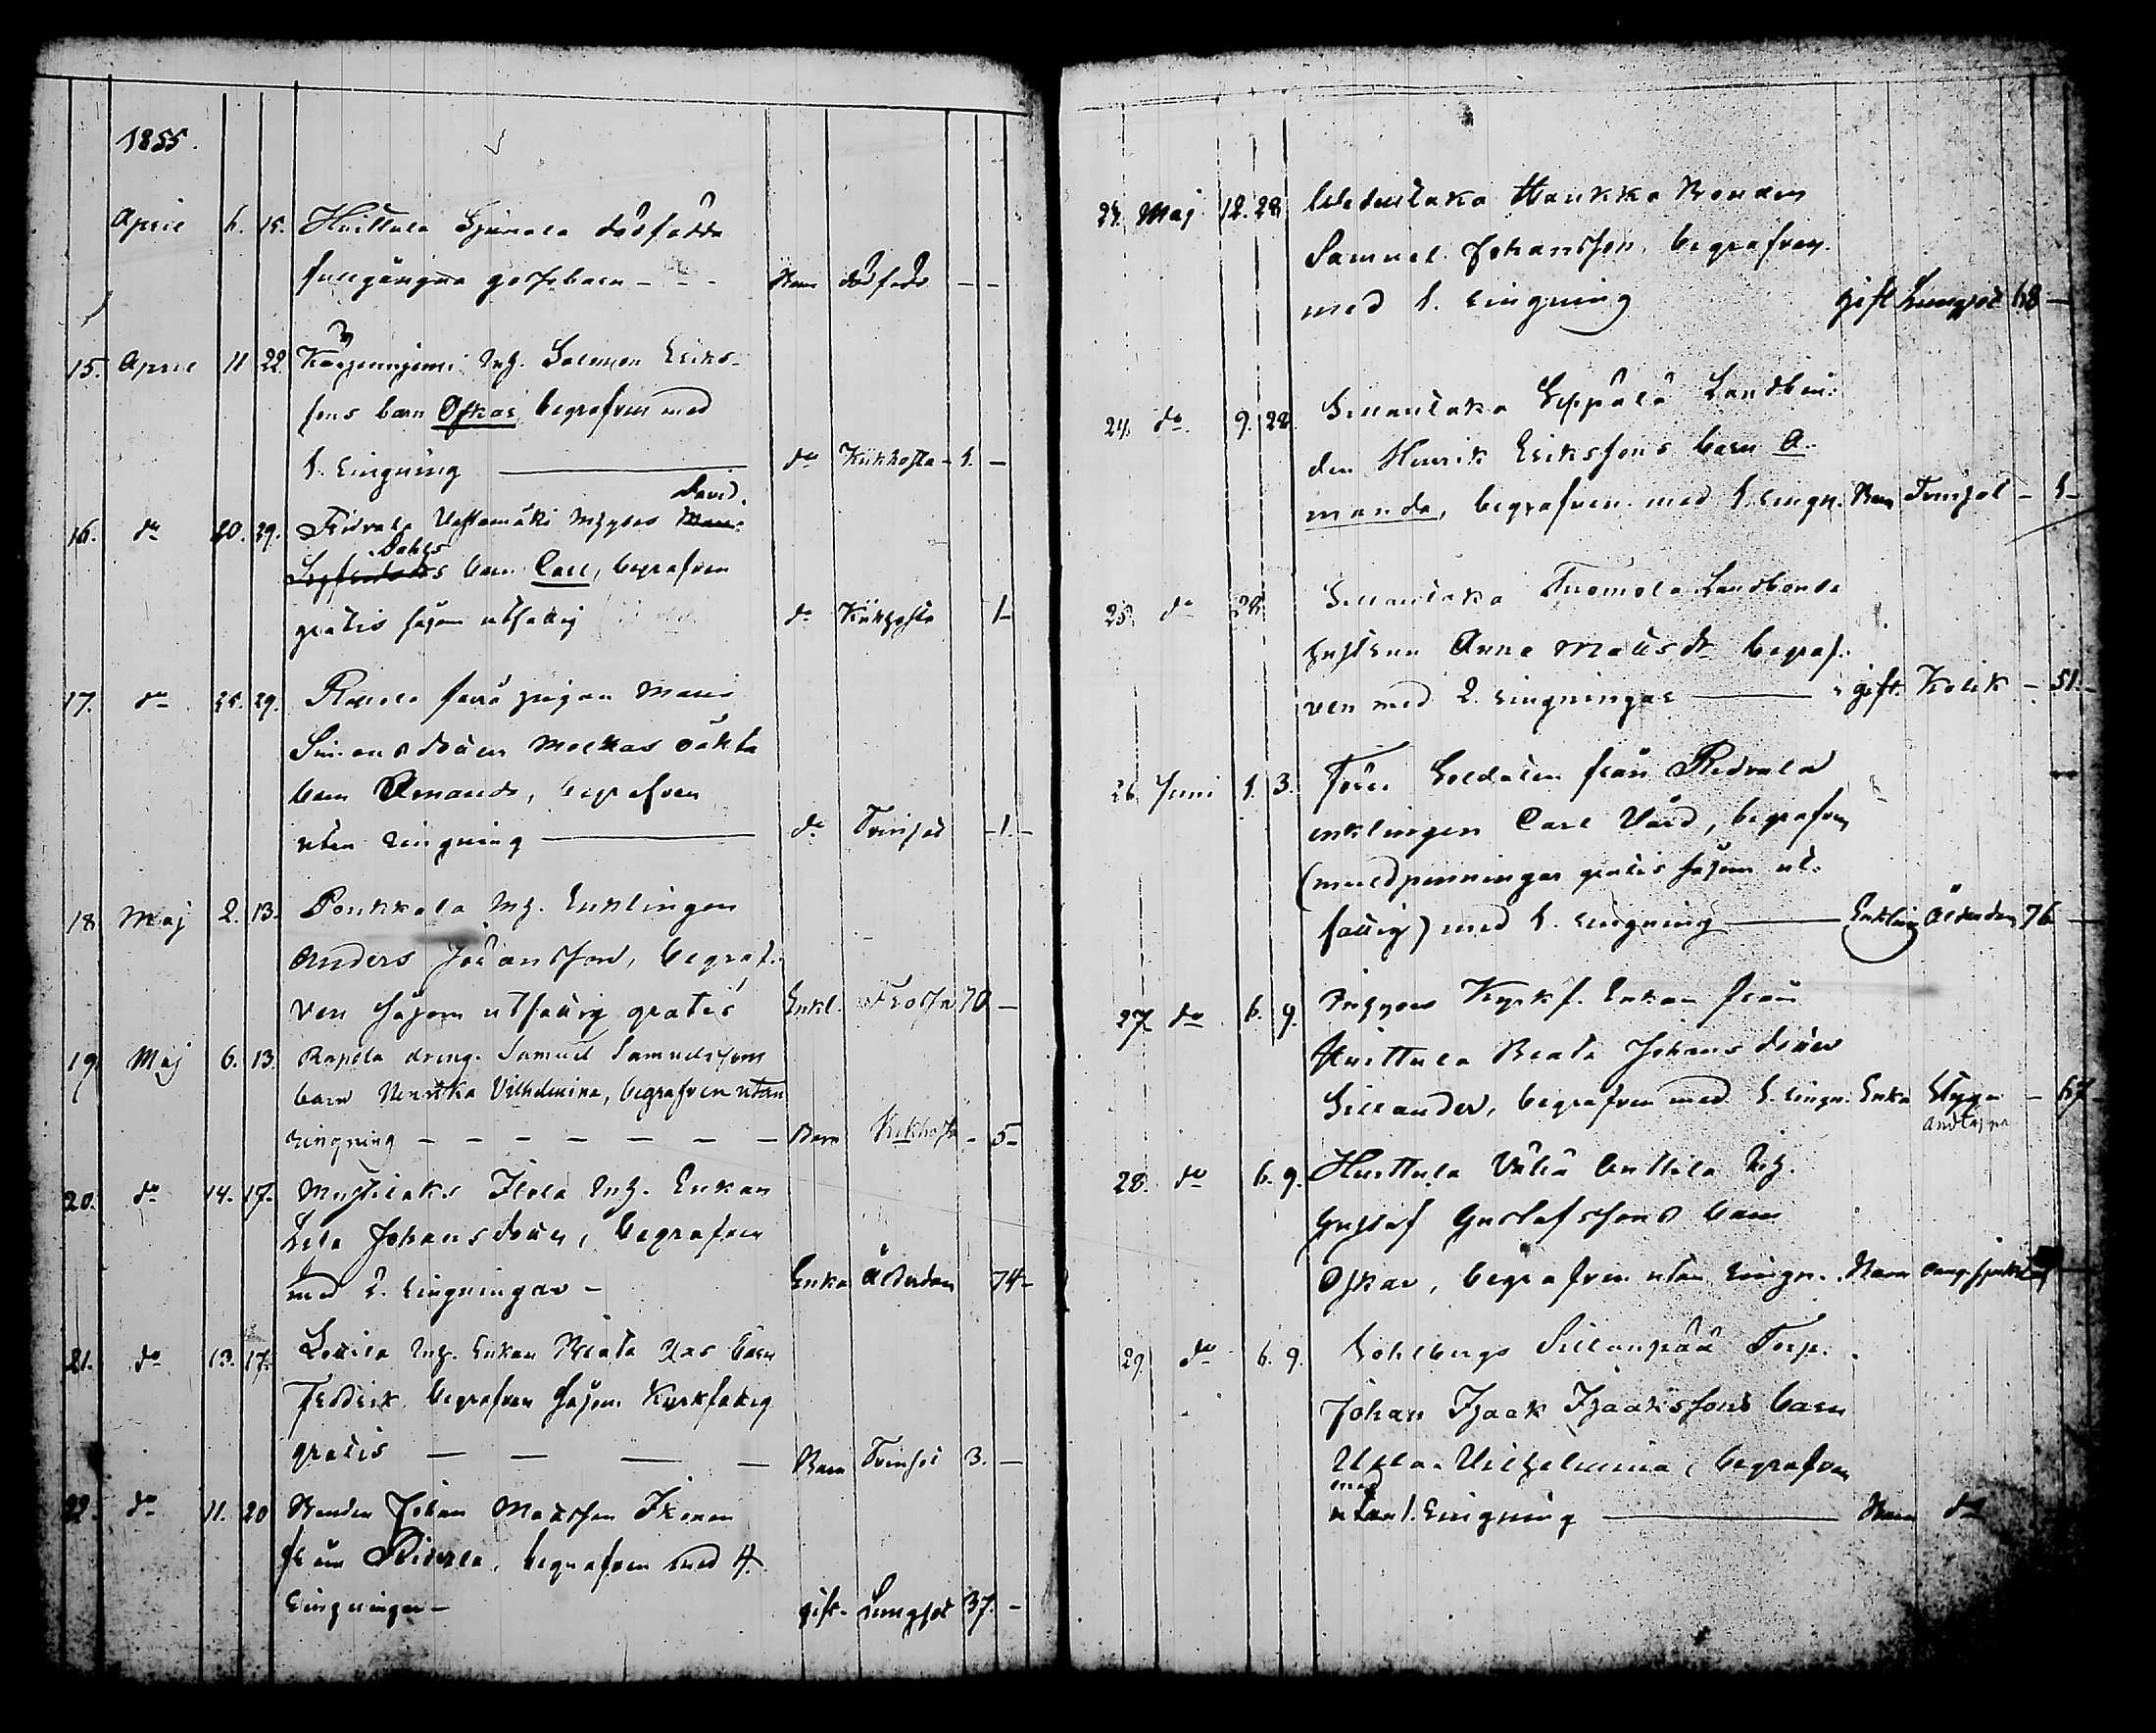 1855.
April 6. 15. Huittula dödfödda
fullgångna gossebarn - - - Barn dödfödd - -
15. April 11 22. Inh. Salomon Eriks-
sons barn Oskar, begrafven med
1. ringning — do Kikhosta - 1. -
David.
16. do 20. 29. Ridvala Inhyses
Dahls
barn Carl, begrafven
gratis såsom utfattig do Kikhosta 1-
17. do 25. 29. pigan Maria
Simonsdotters oäkta
barn Amanda, begrafven
utan ringning — do Tvinsot -1.-
18. Maj 2. 13. Ponkkala Inh. Enklingen
Anders Johansson, begraf-
ven såsom utfattig gratis Enkl. Frossa 70 -
19. Maj 6. 13. Rapola dreng. Samuel Samuelssons
barn Henrika Vilhelmina, begrafven utan
ringning - - - - - - - Barn Kikhosta - 5-
20. do 14. 17. Iso Inh. Enkan
Lisa Johansdotter, begrafven
med 2. ringningar - Enka Ålderdom 74-
21. do 13. 17. Inh. Enkan Beata barn
Fredrik begrafven såsom Kyrkfattig
gratis — — — — Barn Tvinsot 3. —
22. do 11. 20 Bonden Johan Mattsson Ikonen
från Ridvala, begrafven med 4.
ringningar - gift- Lungsot 37. -
23. Maj 12. 28. Hankko Bonden
Samuel Johansson, begrafven
med 1. ringning gift Lungsot 68 -
24. do 9. 28. Sillantaka Seppälä Landbon-
den Henrik Erikssons barn A-
manda, begrafven med 1. ringn. Barn Tvinsot - 1-
25. do 28. Sillantaka Tuomola Landbonde
hustrun Anna Mattsdr begraf-
ven med 2. ringningar — gift. Kolik - 51.-
26. Juni 1. 3. Förre Soldaten från Ridvala
enklingen Carl Vård, begrafven
(mullpenningar gratis såsom ut-
fattig) med 1. ringning — Enkling Ålderdom 76 -
27. do 6. 9. Inhyses Kyrkf. Enkan från
Huittula Beata Johansdotter
Sillander, begrafven med 1. ringn. Enka Stygn - 67-
andtäppa
28. do 6. 9. Huittula Anttila Inh.
Gustaf Gustafssons barn
Oskar, begrafven utan ringn. Barn
29. do 6. 9. Sohlbergs Sillanpää Torp.
Johan Isaak Isaakssons barn
Ulla Vilhelmina, begrafven
med
utan 1. ringning — Barn do